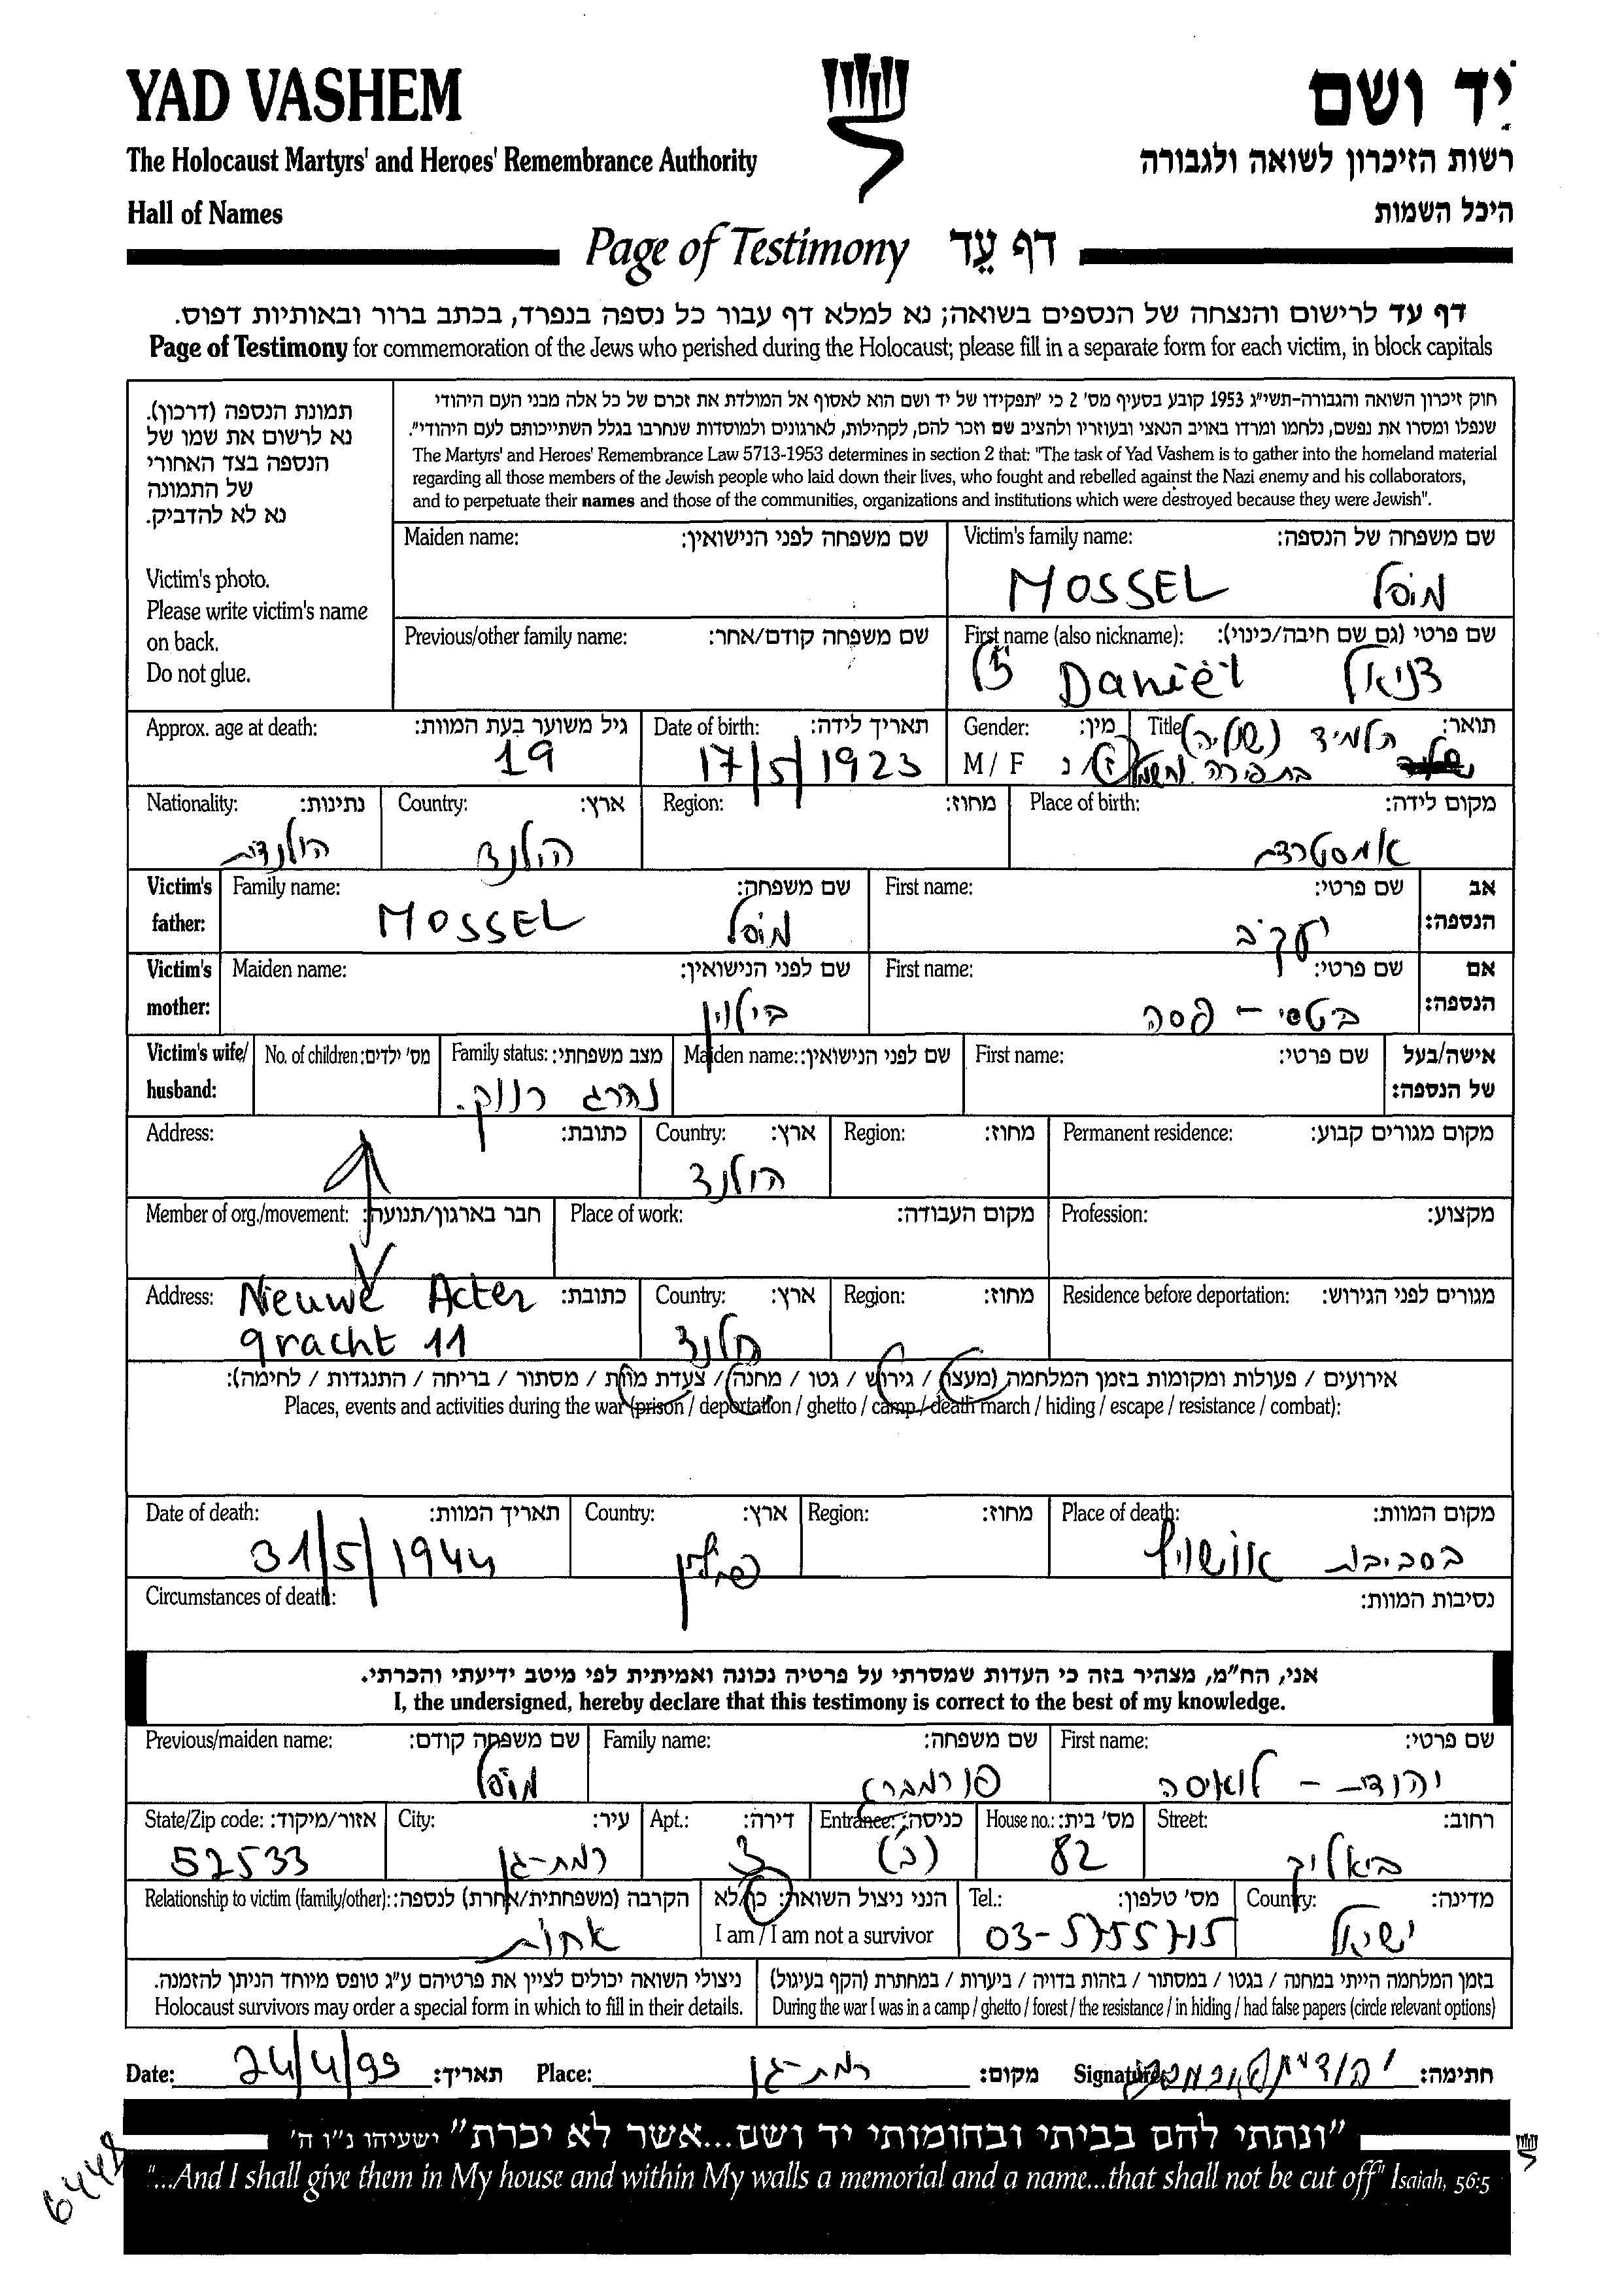 YAD VASHEM
יד ושם
The Holocaust Martyrs' and Heroes' Remembrance Authority
רשות הזיכרון לשואה ולגבורה
Hall of Names
היכל השמות
Page of Testimony דף עֵד
דף עד לרישום והנצחה של הנספים בשואה; נא למלא דף עבור כל נספה בנפרד, בכתב ברור ובאותיות דפוס.
Page of Testimony for commemoration of the Jews who perished during the Holocaust; please fill in a separate form for each victim, in block capitals
תמונת הנספה (דרכון).
נא לרשום את שמו של
הנספה בצד האחורי
של התמונה
נא לא להדביק.
Victim's photo.
Please write victim's name
on back.
Do not glue.
חוק זיכרון השואה והגבורה-תשי״ג 1953 קובע בסעיף מס' 2 כי ״תפקידו של יד ושם הוא לאסוף אל המולדת את זכרם של כל אלה מבני העם היהודי
שנפלו ומסרו את נפשם, נלחמו ומרדו באויב הנאצי ובעוזריו ולהציב שם וזכר להם, לקהילות, לארגונים ולמוסדות שנחרבו בגלל השתייכותם לעם היהודי״.
The Martyrs' and Heroes' Remembrance Law 5713-1953 determines in section 2 that: "The task of Yad Vashem is to gather into the homeland material
regarding all those members of the Jewish people who laid down their lives, who fought and rebelled against the Nazi enemy and his collaborators,
and to perpetuate their names and those of the communities, organizations and institutions which were destroyed because they were Jewish".
Maiden name: שם משפחה לפני הנישואין:
Victim's family name: שם משפחה של הנספה:
MOSSEL מוסל
Previous/other family name: שם משפחה קודם/אחר:
First name (also nickname): שם פרטי (גם שם חיבה/כינוי):
Daniël דניאל
Approx. age at death: גיל משוער בעת המוות:
19
Date of birth: תאריך לידה:
17/5/1923
Gender: מין:
M / F ז / נ
Title: תואר:
תלמיד
Nationality: נתינות:
הולנדית
Country: ארץ:
הולנד
Region: מחוז:
Place of birth: מקום לידה:
אמסטרדם
Victim's father:
Family name: שם משפחה:
MOSSEL מוסל
First name: שם פרטי:
יעקב
אב הנספה:
Victim's mother:
Maiden name: שם לפני הנישואין:
First name: שם פרטי:
בטסי - פסה
אם הנספה:
Victim's wife/ husband:
No. of children: מס' ילדים:
Family status: מצב משפחתי:
נהרג רווק.
Maiden name: שם לפני הנישואין:
First name: שם פרטי:
אישה/בעל של הנספה:
Address: כתובת:
Country: ארץ:
הולנד
Region: מחוז:
Permanent residence: מקום מגורים קבוע:
Member of org./movement: חבר בארגון/תנועה:
Place of work: מקום העבודה:
Profession: מקצוע:
Address: כתובת:
Nieuwe Acter
gracht 11
Country: ארץ:
הולנד
Region: מחוז:
Residence before deportation: מגורים לפני הגירוש:
אירועים / פעולות ומקומות בזמן המלחמה (מעצר / גירוש / גטו / מחנה / צעדת מוות / מסתור / בריחה / התנגדות / לחימה):
Places, events and activities during the war (prison / deportation / ghetto / camp / death march / hiding / escape / resistance / combat):
Date of death: תאריך המוות:
31/5/1944
Country: ארץ:
פולין
Region: מחוז:
Place of death: מקום המוות:
בסביבת אושוויץ
Circumstances of death: נסיבות המוות:
אני, הח״מ, מצהיר בזה כי העדות שמסרתי על פרטיה נכונה ואמיתית לפי מיטב ידיעתי והכרתי.
I, the undersigned, hereby declare that this testimony is correct to the best of my knowledge.
Previous/maiden name: שם משפחה קודם:
מוסל
Family name: שם משפחה:
First name: שם פרטי:
יהודית - לואיסה
State/Zip code: אזור/מיקוד:
52533
City: עיר:
רמת-גן
Apt.: דירה:
3
Entrance: כניסה:
(ב)
House no.: מס' בית:
82
Street: רחוב:
ביאליק
Relationship to victim (family/other): הקרבה (משפחתית/אחרת) לנספה:
אחות
הנני ניצול השואה: כן/לא
I am / I am not a survivor
Tel.: מס' טלפון:
03-5755715
Country: מדינה:
ישראל
ניצולי השואה יכולים לציין את פרטיהם ע״ג טופס מיוחד הניתן להזמנה.
Holocaust survivors may order a special form in which to fill in their details.
בזמן המלחמה הייתי במחנה / בגטו / במסתור / בזהות בדויה / ביערות / במחתרת (הקף בעיגול)
During the war I was in a camp / ghetto / forest / the resistance / in hiding / had false papers (circle relevant options)
Date: 24/4/99 תאריך:
Place: רמת-גן מקום:
Signature: חתימה:
״ונתתי להם בביתי ובחומותי יד ושם...אשר לא יכרת״ ישעיהו נ״ו ה'
"...And I shall give them in My house and within My walls a memorial and a name...that shall not be cut off" Isaiah, 56:5